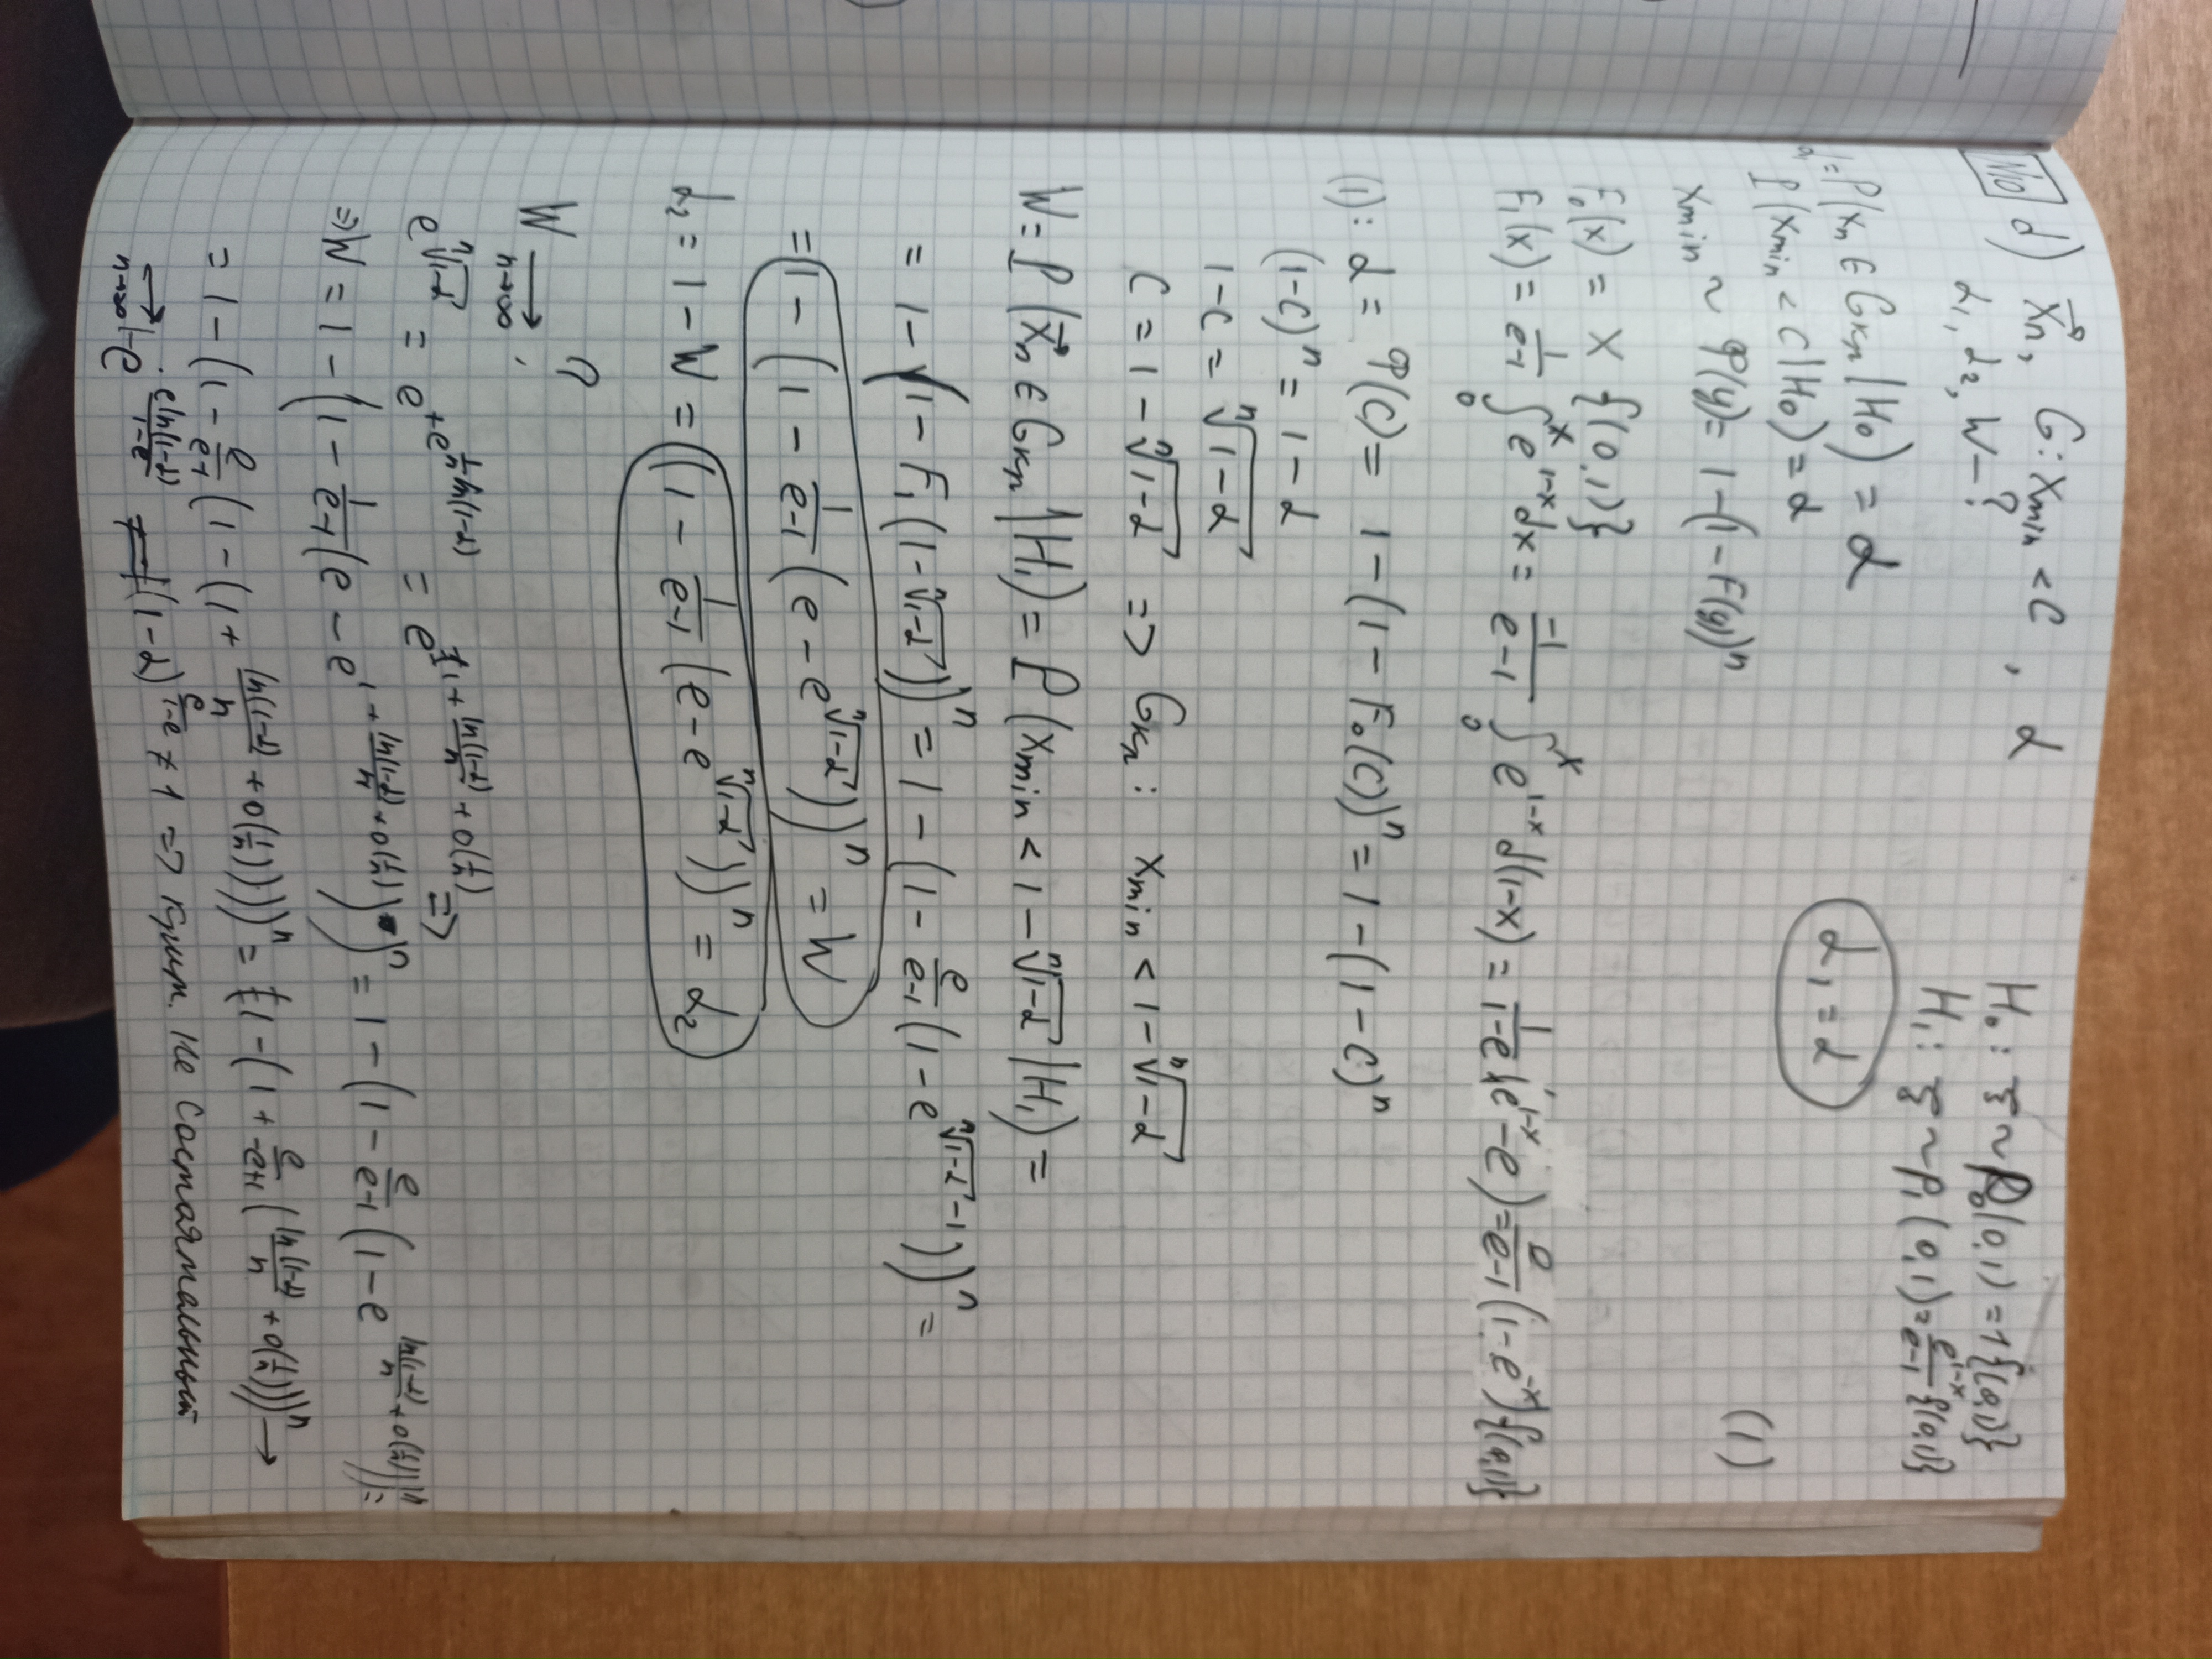 N10 d) x⃗n, G: xmin < C, α
α₁, α₂, W – ?
H₀: ξ ~ p₀(0,1) = 1{(0,1)}
H₁: ξ ~ p₁(0,1) = e^(1-x)/(e-1) {(0,1)}
α₁ = P(xn ∈ Gкр | H₀) = α
α₁ = α
P(xmin < C | H₀) = α
(1)
xmin ~ φ(y) = 1-(1-F(y))^n
F₀(x) = x {(0,1)}
F₁(x) = 1/(e-1) ∫₀^x e^(1-x) dx = -1/(e-1) ∫₀^x e^(1-x) d(1-x) = 1/(1-e) (e^(1-x) - e) = e/(e-1) (1-e^(-x)) {(0,1)}
(1): α = φ(C) = 1-(1-F₀(C))^n = 1-(1-C)^n
(1-C)^n = 1-α
1-C = ⁿ√(1-α)
C = 1-ⁿ√(1-α) => Gкр: xmin < 1-ⁿ√(1-α)
W = P(x⃗n ∈ Gкр | H₁) = P(xmin < 1-ⁿ√(1-α) | H₁) =
= 1-(1-F₁(1-ⁿ√(1-α)))^n = 1-(1-e/(e-1) (1-e^(ⁿ√(1-α) -1)))^n =
= 1-(1-1/(e-1) (e-e^(ⁿ√(1-α))))^n = W
α₂ = 1-W = (1-1/(e-1) (e-e^(ⁿ√(1-α))))^n = α₂
W → n→∞ ?
e^(ⁿ√(1-α)) = e^(+e^(1/n ln(1-α))) = e^(1+ln(1-α)/n+o(1/n)) =>
=> W = 1-(1-1/(e-1) (e-e^(1+ln(1-α)/n+o(1/n))))^n = 1-(1-e/(e-1) (1-e^(ln(1-α)/n+o(1/n))))^n =
= 1-(1-e/(e-1) (1-(1+ln(1-α)/n+o(1/n))))^n = 1-(1+e/(-e+1) (ln(1-α)/n+o(1/n)))^n →
→ n→∞ 1-e^(e ln(1-α)/(1-e)) (1-α)^(e/(1-e)) ≠ 1 => крит. не состоятельный